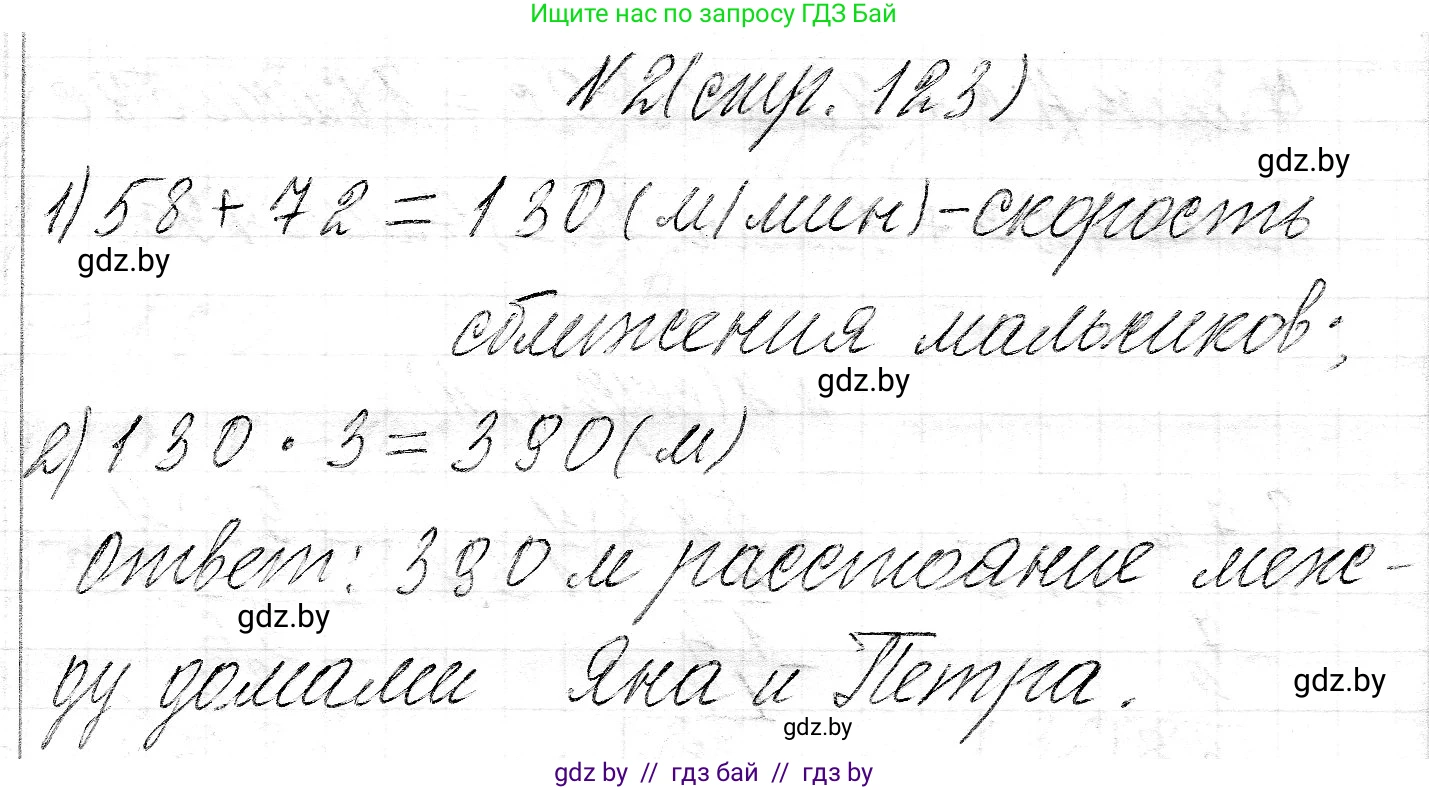 Ищите нас по запросу ГДЗ Бай
№2(стр. 123)
gdz.by
1) 58 + 72 = 130 (м/мин) - скорость
gdz.by
сближения мальчиков;
gdz.by
2) 130 · 3 = 390 (м)
ответ: 390 м расстояние меж-
gdz.by
ду домами Яна и Петра.
gdz.by
gdz.by
gdz by // гдз бай // гдз by